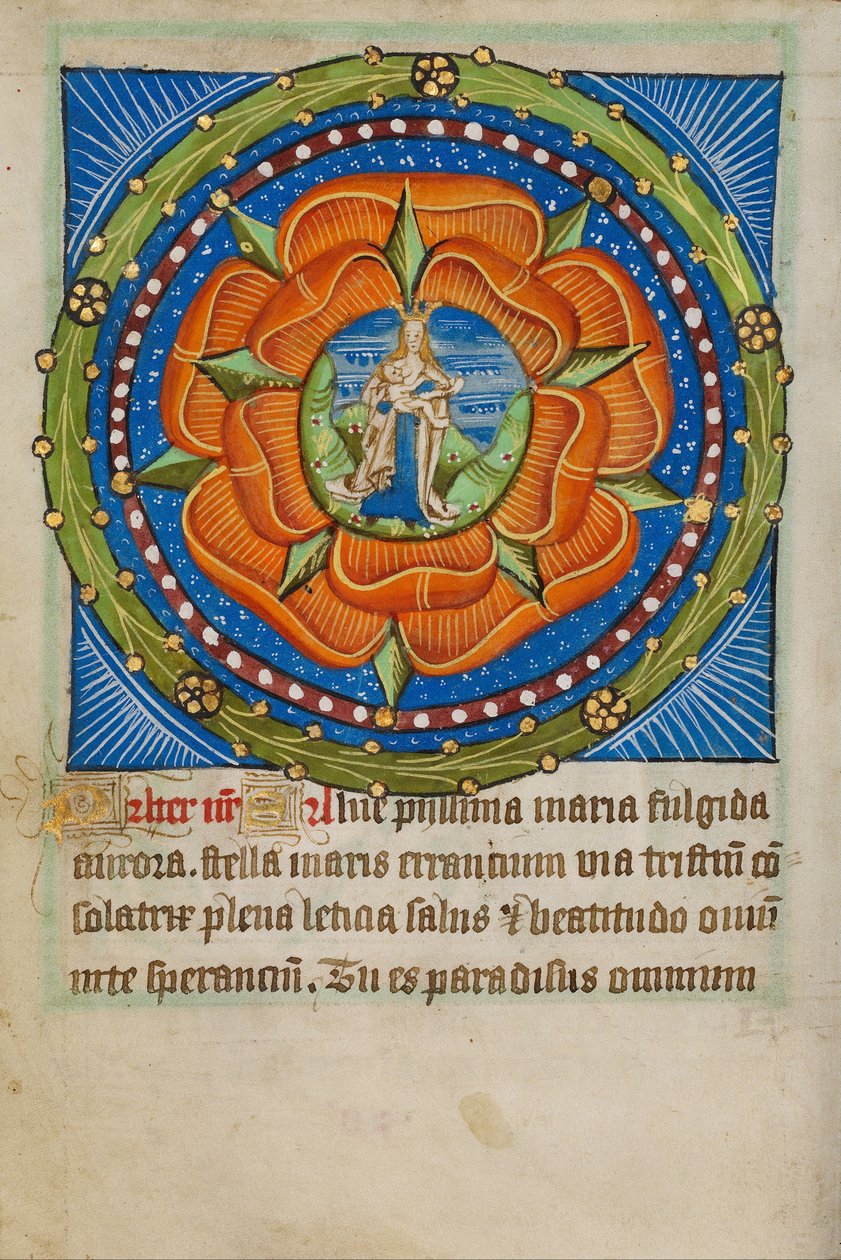 Pater nr̄ Salue piissima maria fulgida
aurora. stella maris errancium via tristiū cō=
solatrix plena leticia salus ⁊ beatitudo omiū
in te speranciū. Tu es paradisus omnium